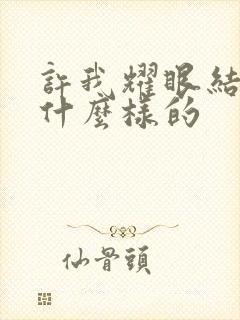 許我耀眼結
什麼樣的
仙骨頭